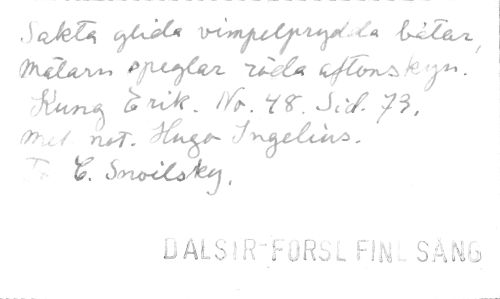 Sakta glida vimpelprydda båtar,
Mälarn speglar röda aftonskyn.
Kung Erik. No. 48. Sid. 73.
Mel. not. Hugo Ingelius.
T. C. Snoilsky.
DALSTR-FORSL FINL SÅNG